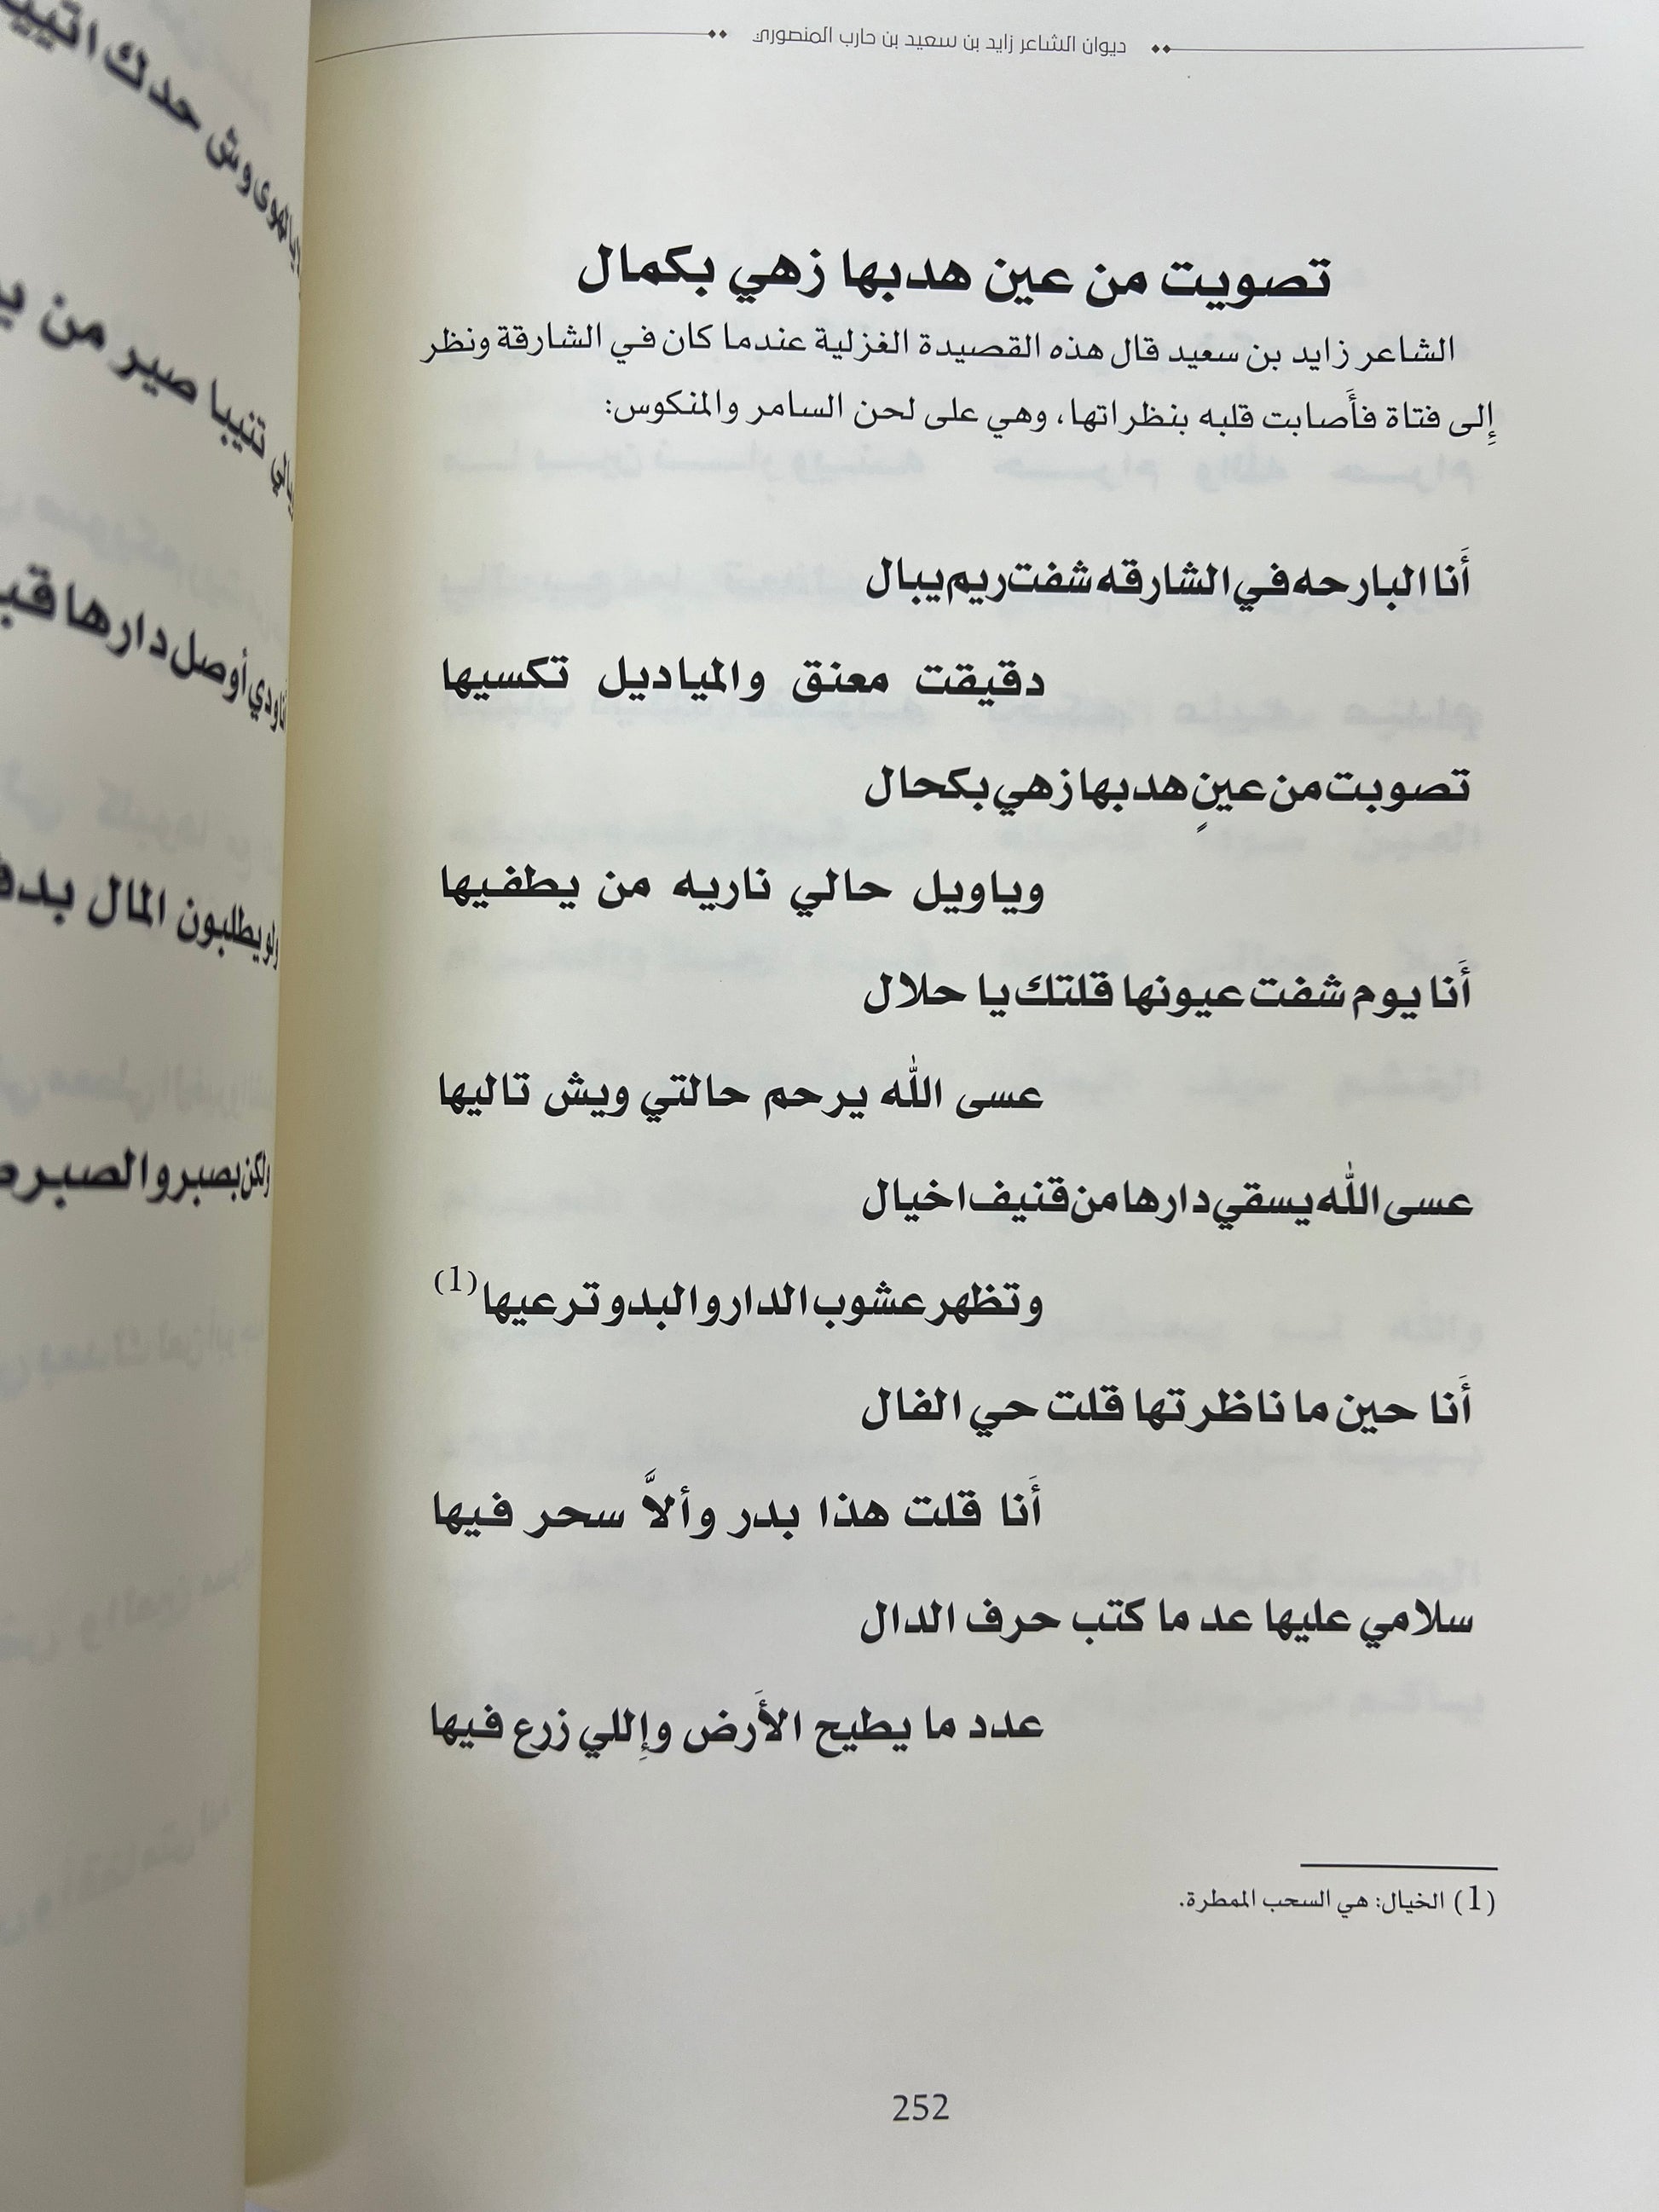 ديوان الشاعر زايد بن سعيد بن حارب المنصوري
تصويت من عين هدبها زهي بكمال
الشاعر زايد بن سعيد قال هذه القصيدة الغزلية عندما كان في الشارقة ونظر
إِلى فتاة فأَصابت قلبه بنظراتها، وهي على لحن السامر والمنكوس:
أَنا البارحه في الشارقه شفت ريم يبال
دقيقت معنق والمياديل تكسيها
تصوبت من عينٍ هدبها زهي بكحال
وياويل حالي ناريه من يطفيها
أَنا يوم شفت عيونها قلتك يا حلال
عسى الله يرحم حالتي ويش تاليها
عسى الله يسقي دارها من قنيف اخيال
وتظهر عشوب الدار والبدو ترعيها (1)
أَنا حين ما ناظرتها قلت حي الفال
أَنا قلت هذا بدر وألاَّ سحر فيها
سلامي عليها عد ما كتب حرف الدال
عدد ما يطيح الأَرض وإللي زرع فيها
(1) الخيال: هي السحب الممطرة.
252
وش حدك
تنيبا صير من
ودي أوصل دارها
ولو يطلبون المال
ولكن بصبر والصبر